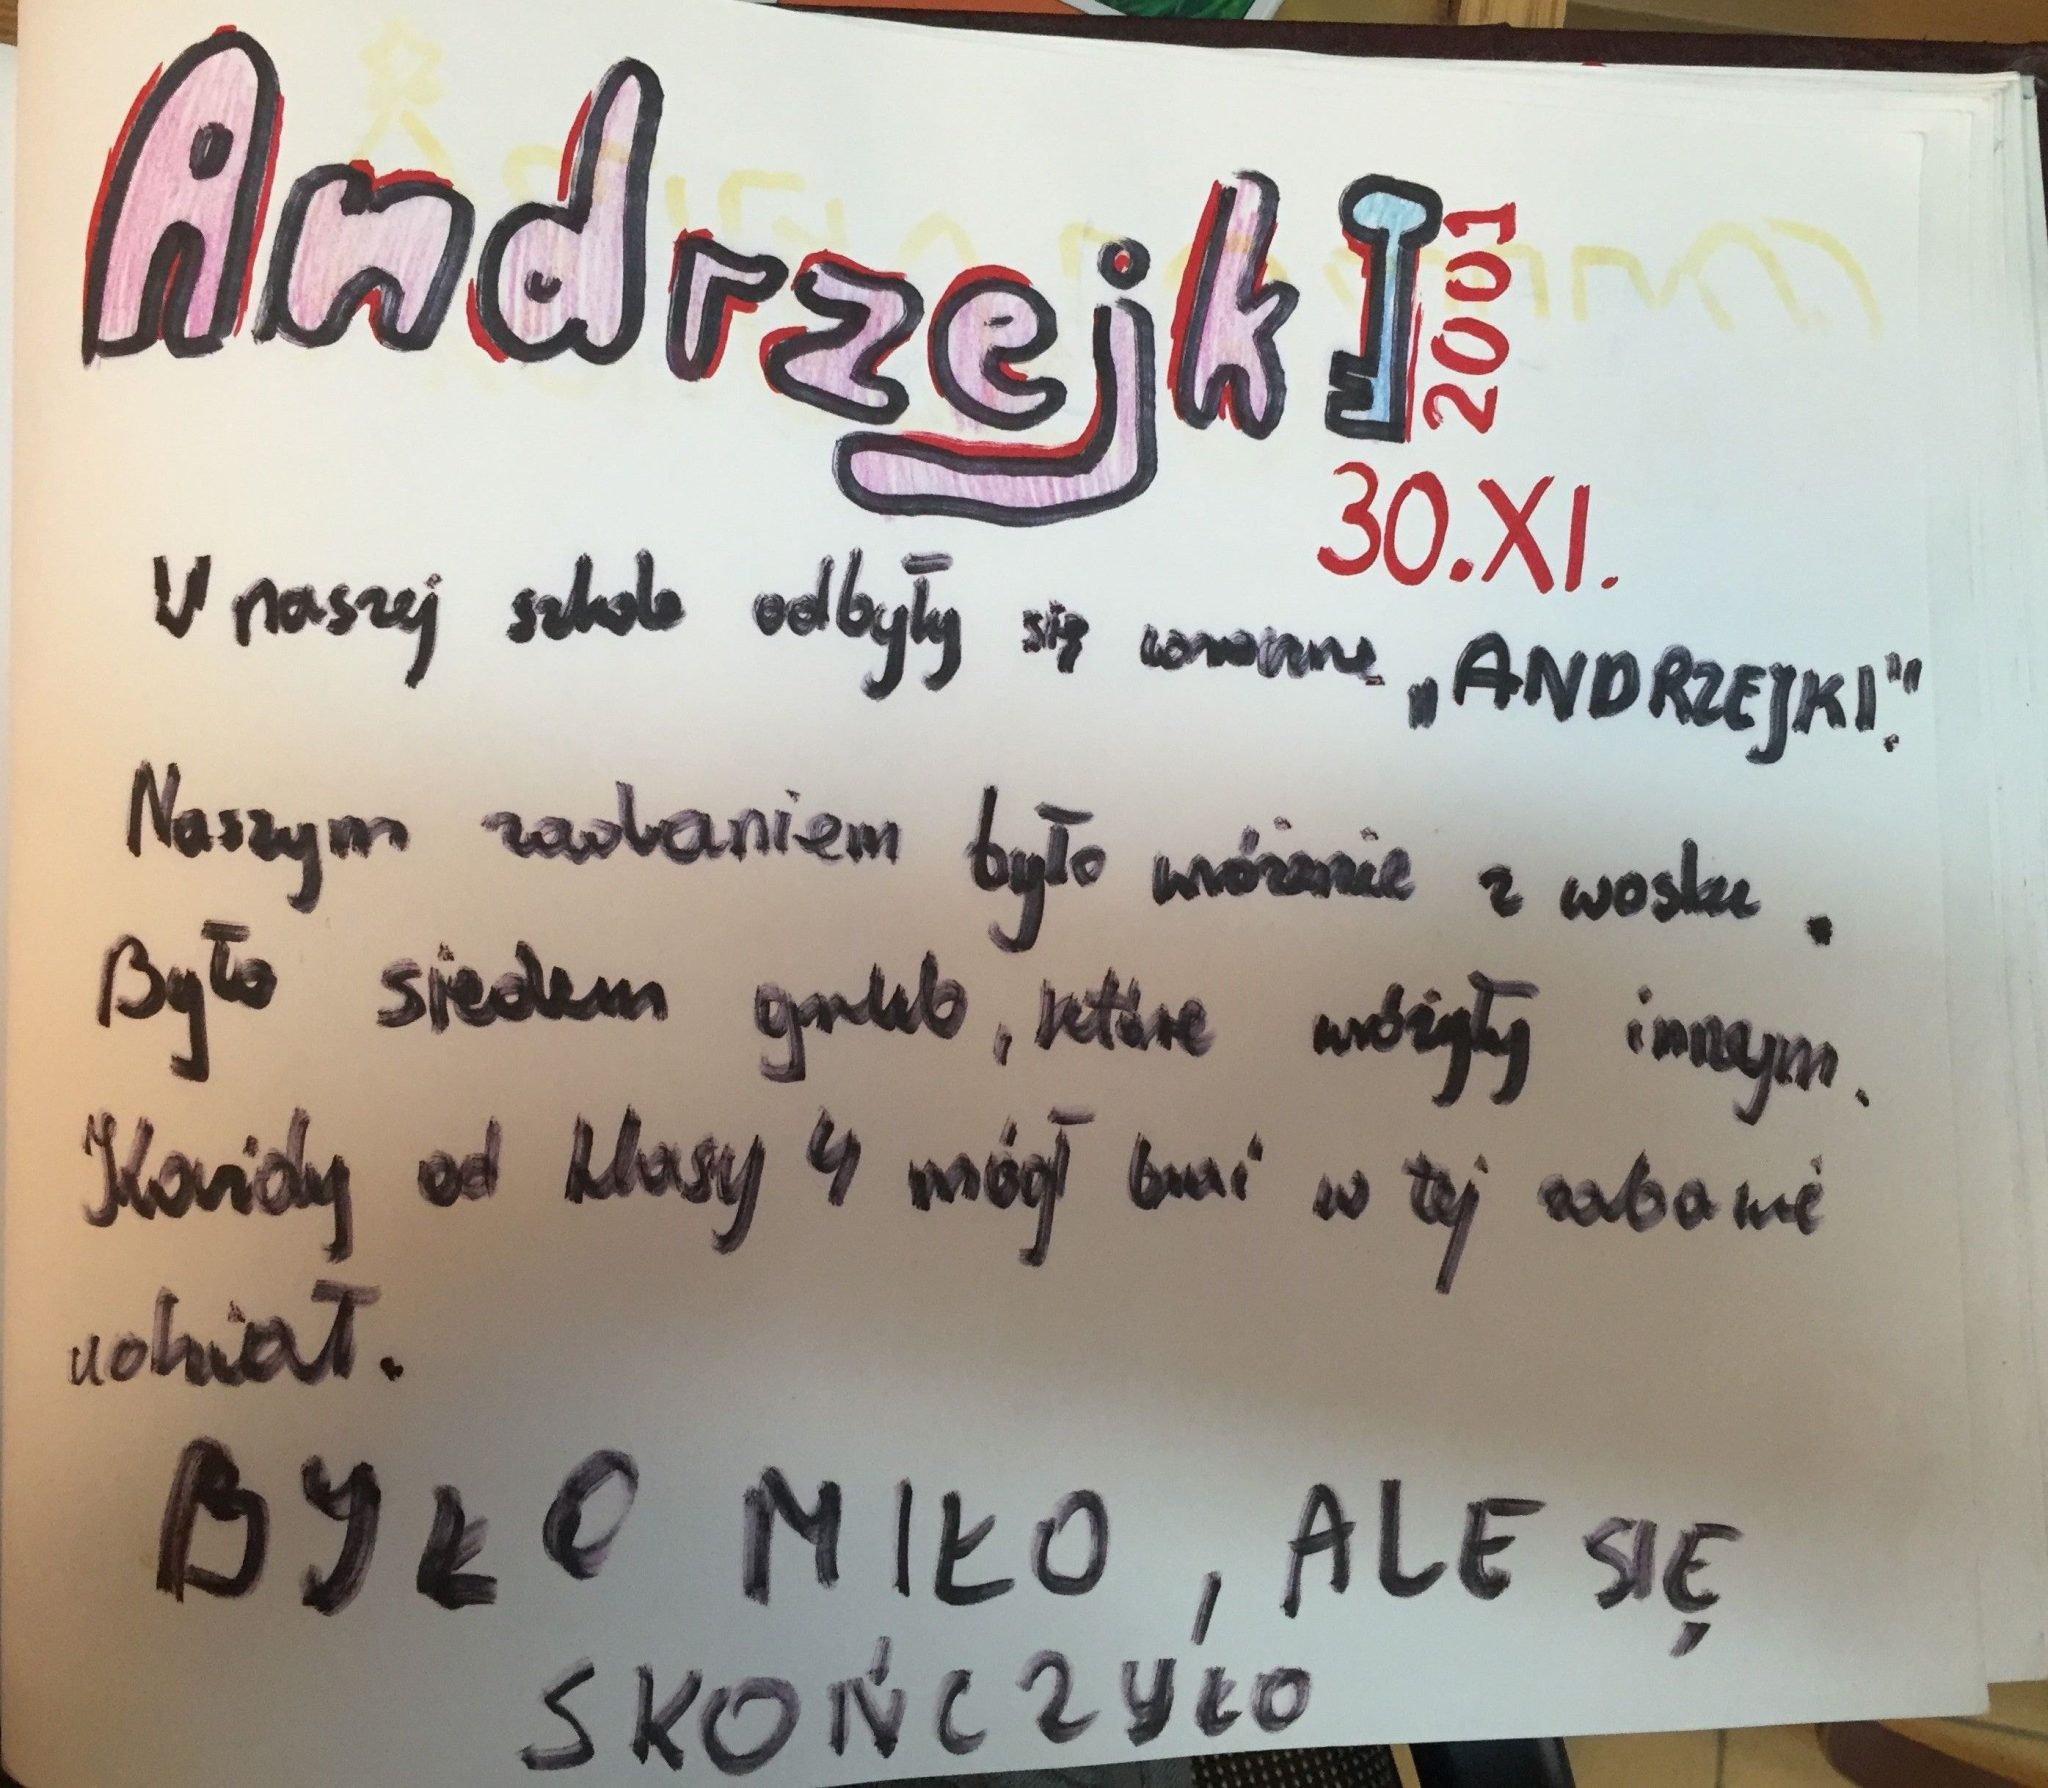 Andrzejki 2001
30.XI.
W naszej szkole odbyły się coroczne „ANDRZEJKI".
Naszym zadaniem było wróżenie z wosku.
Było siedem grup, które wróżyły innym.
Każdy od klasy 4 mógł brać w tej zabawie
udział.
BYŁO MIŁO, ALE SIĘ
SKOŃCZYŁO